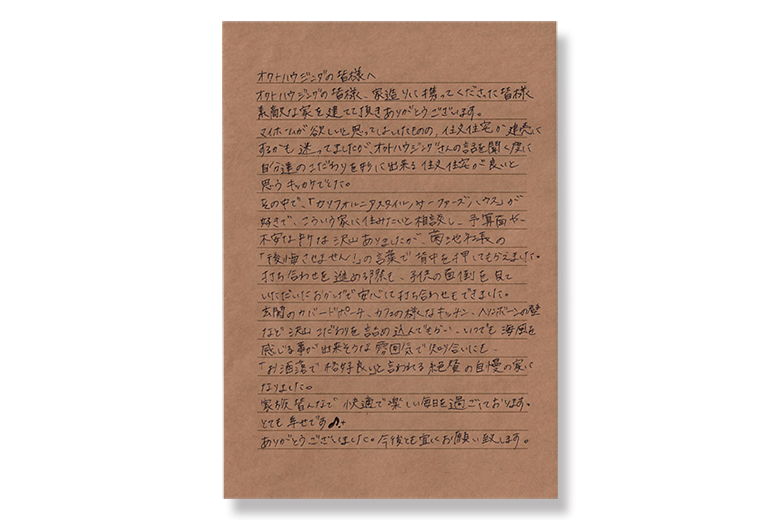 オクトハウジングの皆様へ
オクトハウジングの皆様、家造りに携ってくださった皆様
素敵な家を建てて頂きありがとうございます。
マイホームが欲しいと思ってはいたものの、注文住宅か建売に
するかも迷ってましたが、オクトハウジングさんの話を聞く度に
自分達のこだわりを形に出来る注文住宅が良いと
思うキッカケでした。
その中で、「カリフォルニアスタイル/サーファーズハウス」が
好きで、こういう家に住みたいと相談し、予算面や
不安な事は沢山ありましたが、菊池社長の
「後悔させません!」の言葉で背中を押してもらえました。
打ち合わせを進める際も、子供の面倒を見て
いただいたおかげで安心して打ち合わせもできました。
玄関のカバードポーチ、カフェの様なキッチン、ヘリンボーンの壁
など沢山こだわりを詰め込んでもらい、いつでも海風を
感じる事が出来そうな雰囲気で知り合いにも
「お洒落で格好良い」と言われる絶賛の自慢の家に
なりました。
家族皆んなで快適で楽しい毎日を過ごしております。
とても幸せです♪
ありがとうございました。今後とも宜しくお願い致します。